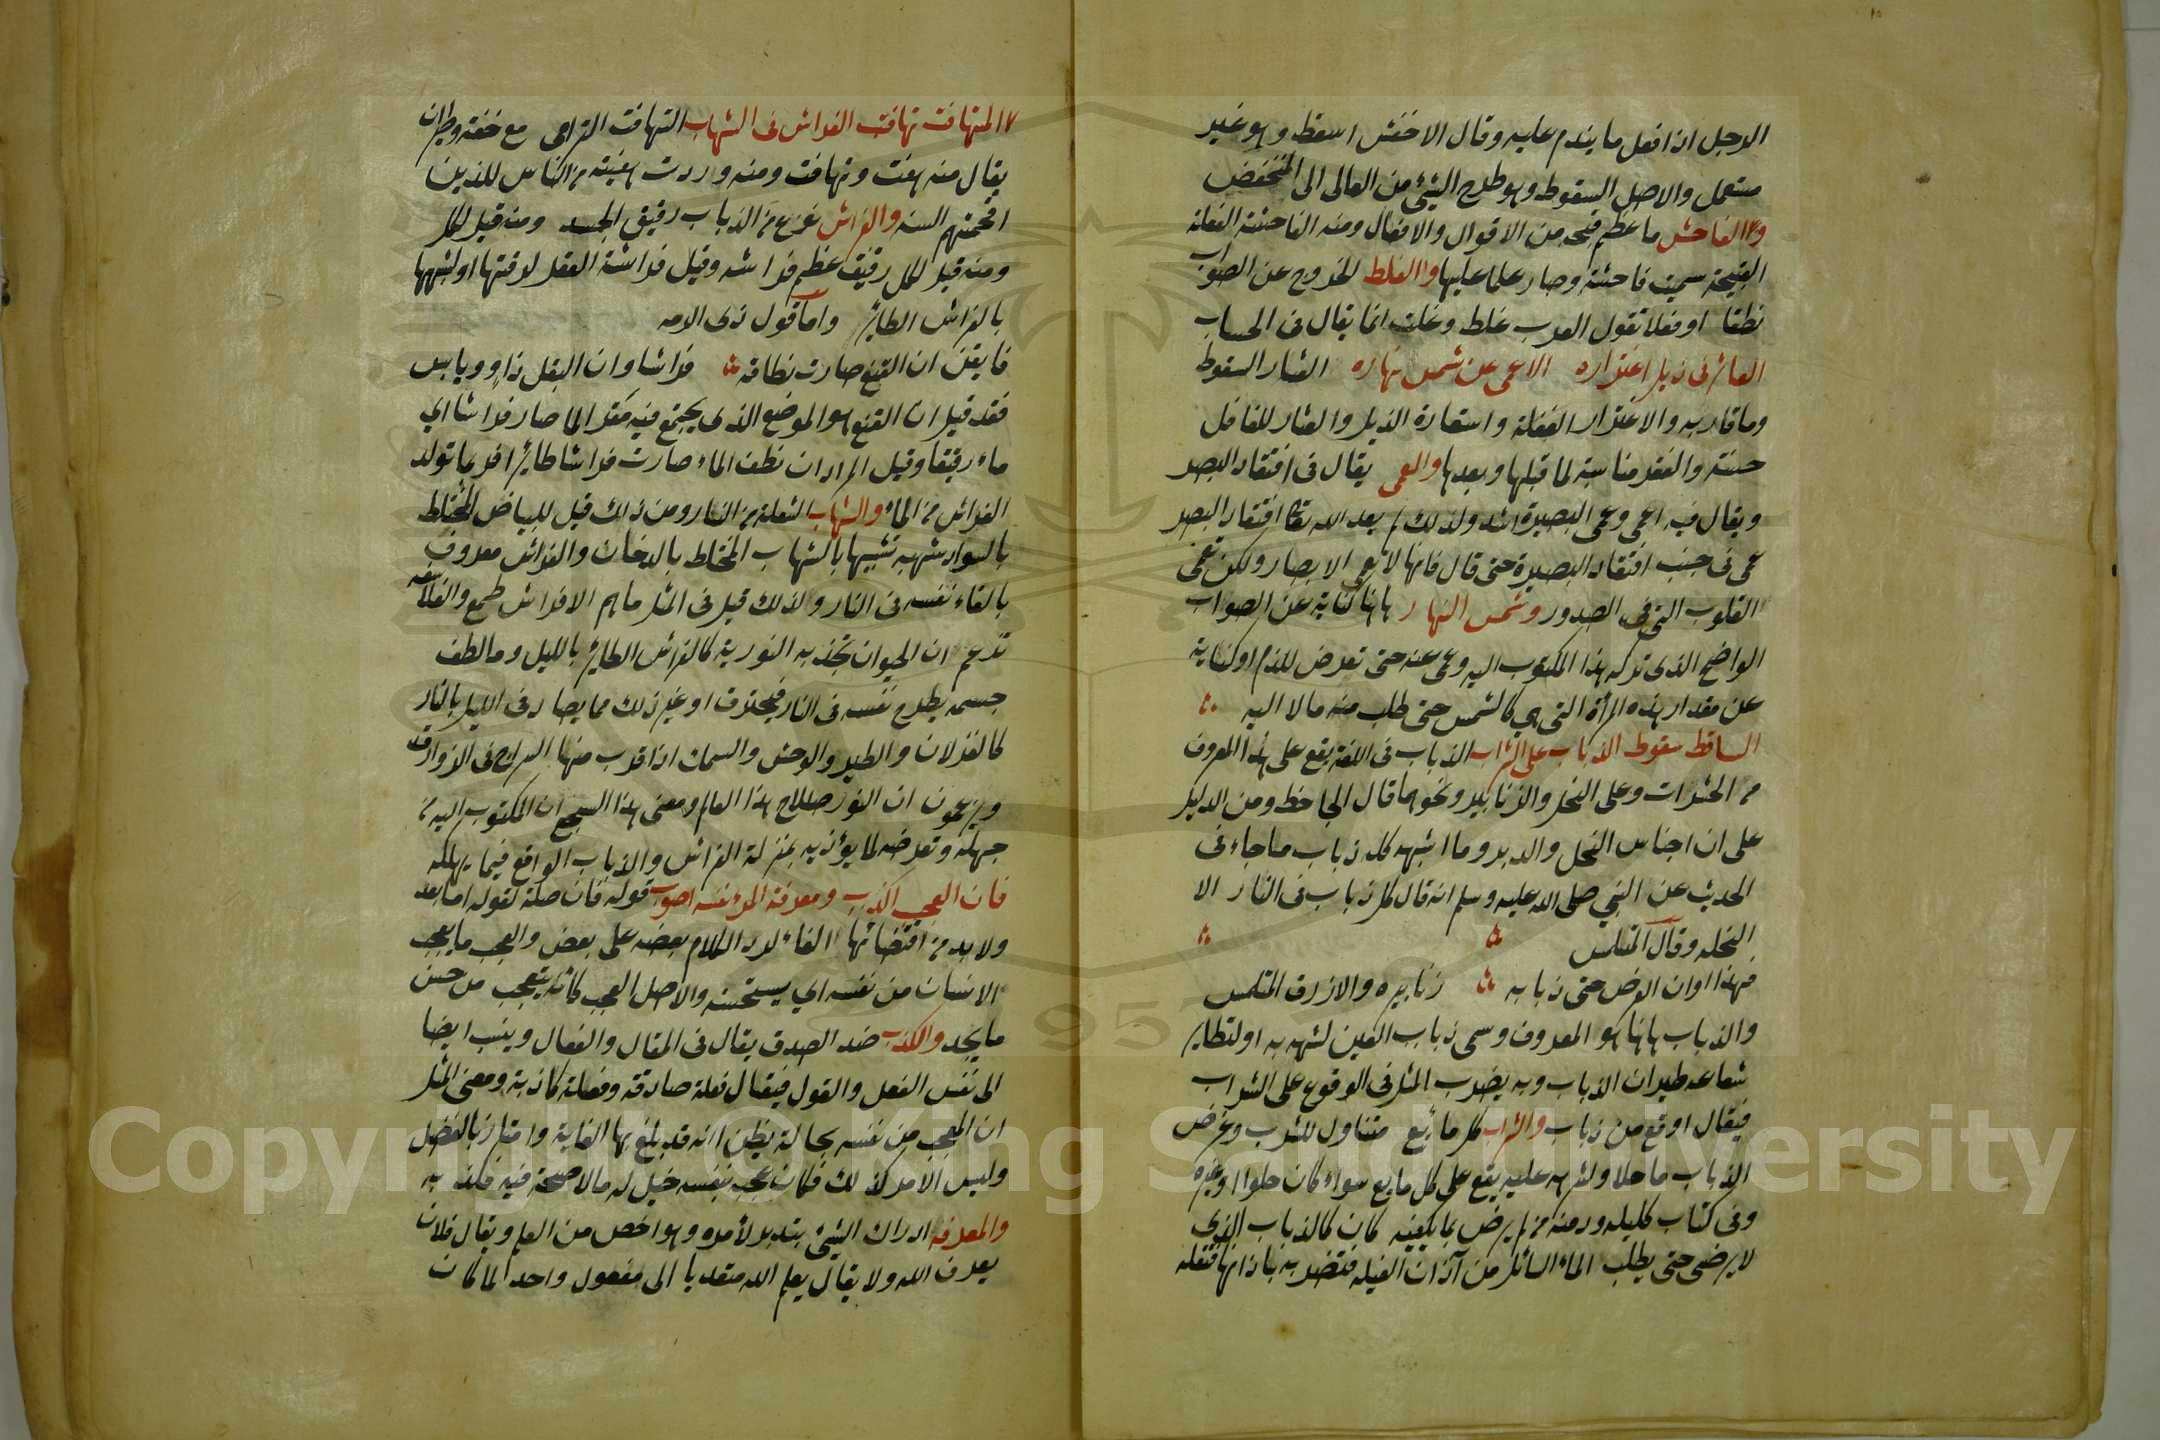 الرجل اذا فعل ما يندم عليه وقال الاخفش اسقط وهو غير
مستعمل والاصل السقوط وهو طرح الشئ من العالى الى المنخفض
والفاحش ما عظم قبحه من الاقوال والافعال ومنه الفاحشة الفعلة
القبيحة سميت فاحشة وصار علما عليها والغلط الخروج عن الصواب
نطقا او فعلا تقول العرب غلط وغلت انما يقال فى الحساب
العاثر فى ذيل اغتراره الاعمى عن شمس نهاره العثار السقوط
وما قاربه والاغترار الغفلة واستعارة الذيل والعثار للغافل
حسنة والفقر مناسبة لما قبلها وبعدها والعمى يقال فى افتقاد البصر
ويقال فيه اعمى وعمى البصيرة اشد ولذلك لم يعد الله تعالى افتقاد البصر
عمى فى جنب افتقاد البصيرة حتى قال فانها لا تعمى الابصار ولكن تعمى
القلوب التى فى الصدور وشمس النهار هاهنا كناية عن الصواب
الواضح الذى تركه هذا المكتوب اليه وعمى عنه حتى تعرض للذم او كناية
عن مقدار هذه المرأة التى هى كالشمس حتى طلب منه مالا اليه
الساقط سقوط الذباب على الشراب الذباب فى اللغة يقع على هذا المعروف
من الحشرات وعلى النحل والزنابير ونحوها قال الجاحظ ومن الدليل
على ان اجناس النحل والدبر وما اشبهه كله ذباب ما جاء فى
الحديث عن النبي صلى الله عليه وسلم انه قال كل ذباب فى النار الا
النحله وقال المتلمس
فهذا اوان العرض حتى ذبابه زنابيره والازرق المتلمس
والذباب هاهنا هو المعروف وسمى ذباب العين لشبهه به او لتطاير
شعاعه طيران الذباب وبه يضرب المثل فى الوقوع على الشراب
فيقال اوقع من ذباب والشراب كل مائع متناول للشرب وغرض
الذباب ما حلا ولشرهه عليه يقع على كل مايع سواء كان حلوا او غيره
وفى كتاب كليله ودمنه من لم يرض بما يكفيه كان كالذباب الذى
لا يرضى حتى يطلب الماء السائل من آذان الفيله فتضربه باذانها فتقتله
المتهافت تهافت الفراش فى الشهاب التهافت الترامى مع خفة وطيران
يقال منه هفت وتهافت ومنه وردت هفيتة من الناس للذين
اقحمتهم السنة والفراش نوع من الذباب رقيق الجسد ومنه قيل لكل
ومنه قيل لكل رقيق عظم فراشه وقيل فراشة القفل لرقتها او لشبهها
بالفراش الطائر واما قول ذى الرمه
فايقن ان القنع صارت نطافه فراشا وان البقل ذاو ويابس
فقد قيل ان القنع هو الموضع الذى يجتمع فيه مقر الما صار فراشا اي
ماء رقيقا وقيل المراد ان نطف الماء صارت فراشا طائرا فربما تولد
الفراش من الماء والشهاب الشعلة من النار ومن ذلك قيل للبياض المختلط
بالسواد شهبه تشبيها بالشهاب المختلط بالدخان والفراش معروف
بالقاء نفسه فى النار ولذلك قيل فى المثل ما هم الا فراش طمع والفلاسفه
تزعم ان الحيوان تجذبه النورية كالفراش الطائر بالليل وما لطف
جسمه يطرح نفسه فى النار فيحترق او غير ذلك مما يصاد فى الليل بالنار
كالغزلان والطير والوحش والسمك اذا قرب منها السراج فى الزوارق
ويزعمون ان النور صلاح هذا العالم ومعنى هذا السجع ان المكتوب اليه من
جهله وتعرضه لما يؤذيه بمنزلة الفراش والذباب الواقع فيما يهلكه
فان العجب اكذب ومعرفة المرء نفسه اصوب قوله فان صلة لقوله اما بعد
ولا بد من اقتضائها الفاء لرد الكلام بعضه على بعض والعجب ما يعجب
الانسان من نفسه اي يستحسنه والاصل العجب كانه يتعجب من حسن
ما يجد والكذب ضد الصدق يقال فى المقال والفعال وينسب ايضا
الى نفس الفعل والقول فيقال فعلة صادقة وفعلة كاذبة ومعنى المثل
ان المعجب من نفسه بحالة يظن انه قد بلغ بها الغاية وامتاز بالفضل
وليس الامر كذلك فكان عجب بنفسه خيل له ما لا صحة فيه فكذبه
والمعرفه ادراك الشئ بتدبر لأمره وهو اخص من العلم ويقال فلان
يعرف الله ولا يقال يعلم الله متعديا الى مفعول واحد لما كان